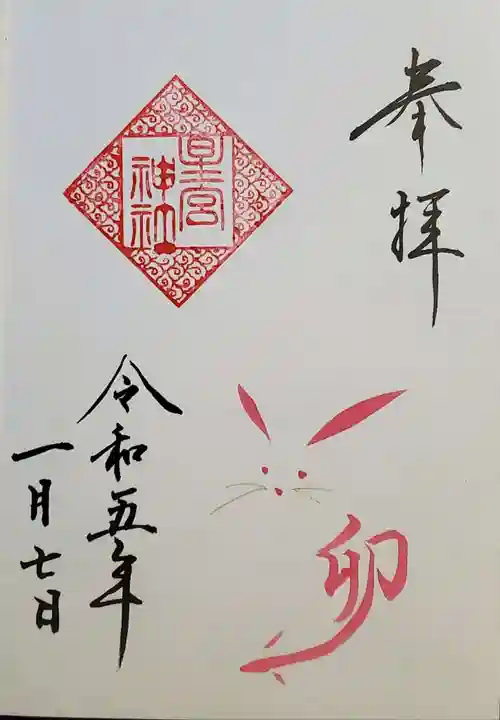 奉拝
神社
卯
令和五年
一月七日